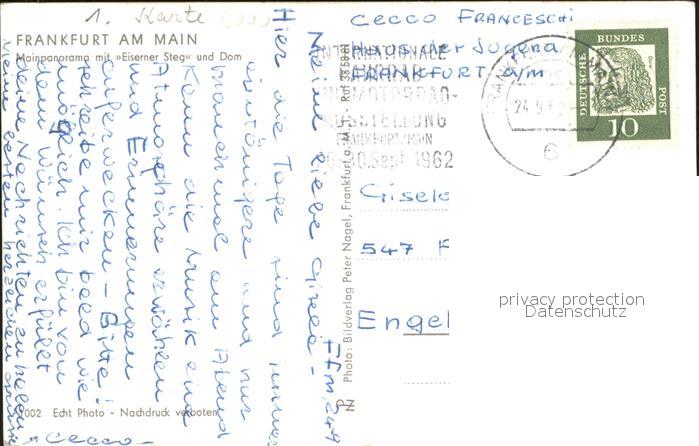 1. Karte
FRANKFURT AM MAIN
Mainpanorama mit »Eiserner Steg« und Dom
Cecco Franceschi
Haus der Jugend
FRANKFURT a/m
INTERNATIONALE
FAHRRAD-
UND MOTORRAD-
AUSSTELLUNG
FRANKFURT/MAIN
30. Sept. 1962
FRANKFURT
24.9.62
6
DEUTSCHE BUNDES POST
10
Ffm, 24.9
Meine liebe Gisela –
Hier die Tage sind immer
eintöniger und nur
manchmal am Abend
kann die Musik eine
Atmosphäre erwählen
und Erinnerungen
auferwecken – Bitte!
schreibe mir bald wie
möglich. Ich bin von
dem Wunsch erfüllt
deine Nachrichten zu haben
meine besten herzlichen
Cecco –
Photo: Bildverlag Peter Nagel, Frankfurt a. M.
Gisel
547
Engel
privacy protection
Datenschutz
2002 Echt Photo - Nachdruck verboten